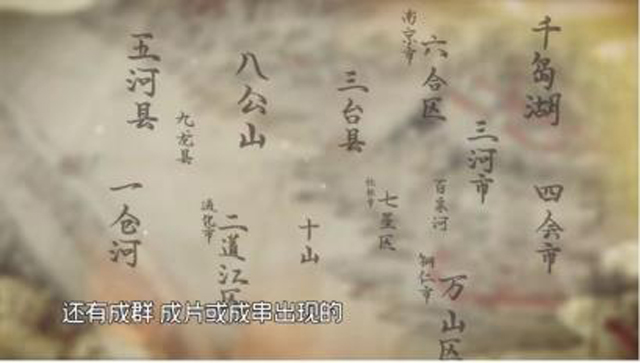 五河县
八公山
三台县
南京市
六合区
千岛湖
九龙县
三河市
一仓河
通化市
二道江区
十山
桂林市
七星区
百泉河
铜仁市
万山区
四会市
还有成群 成片或成串出现的